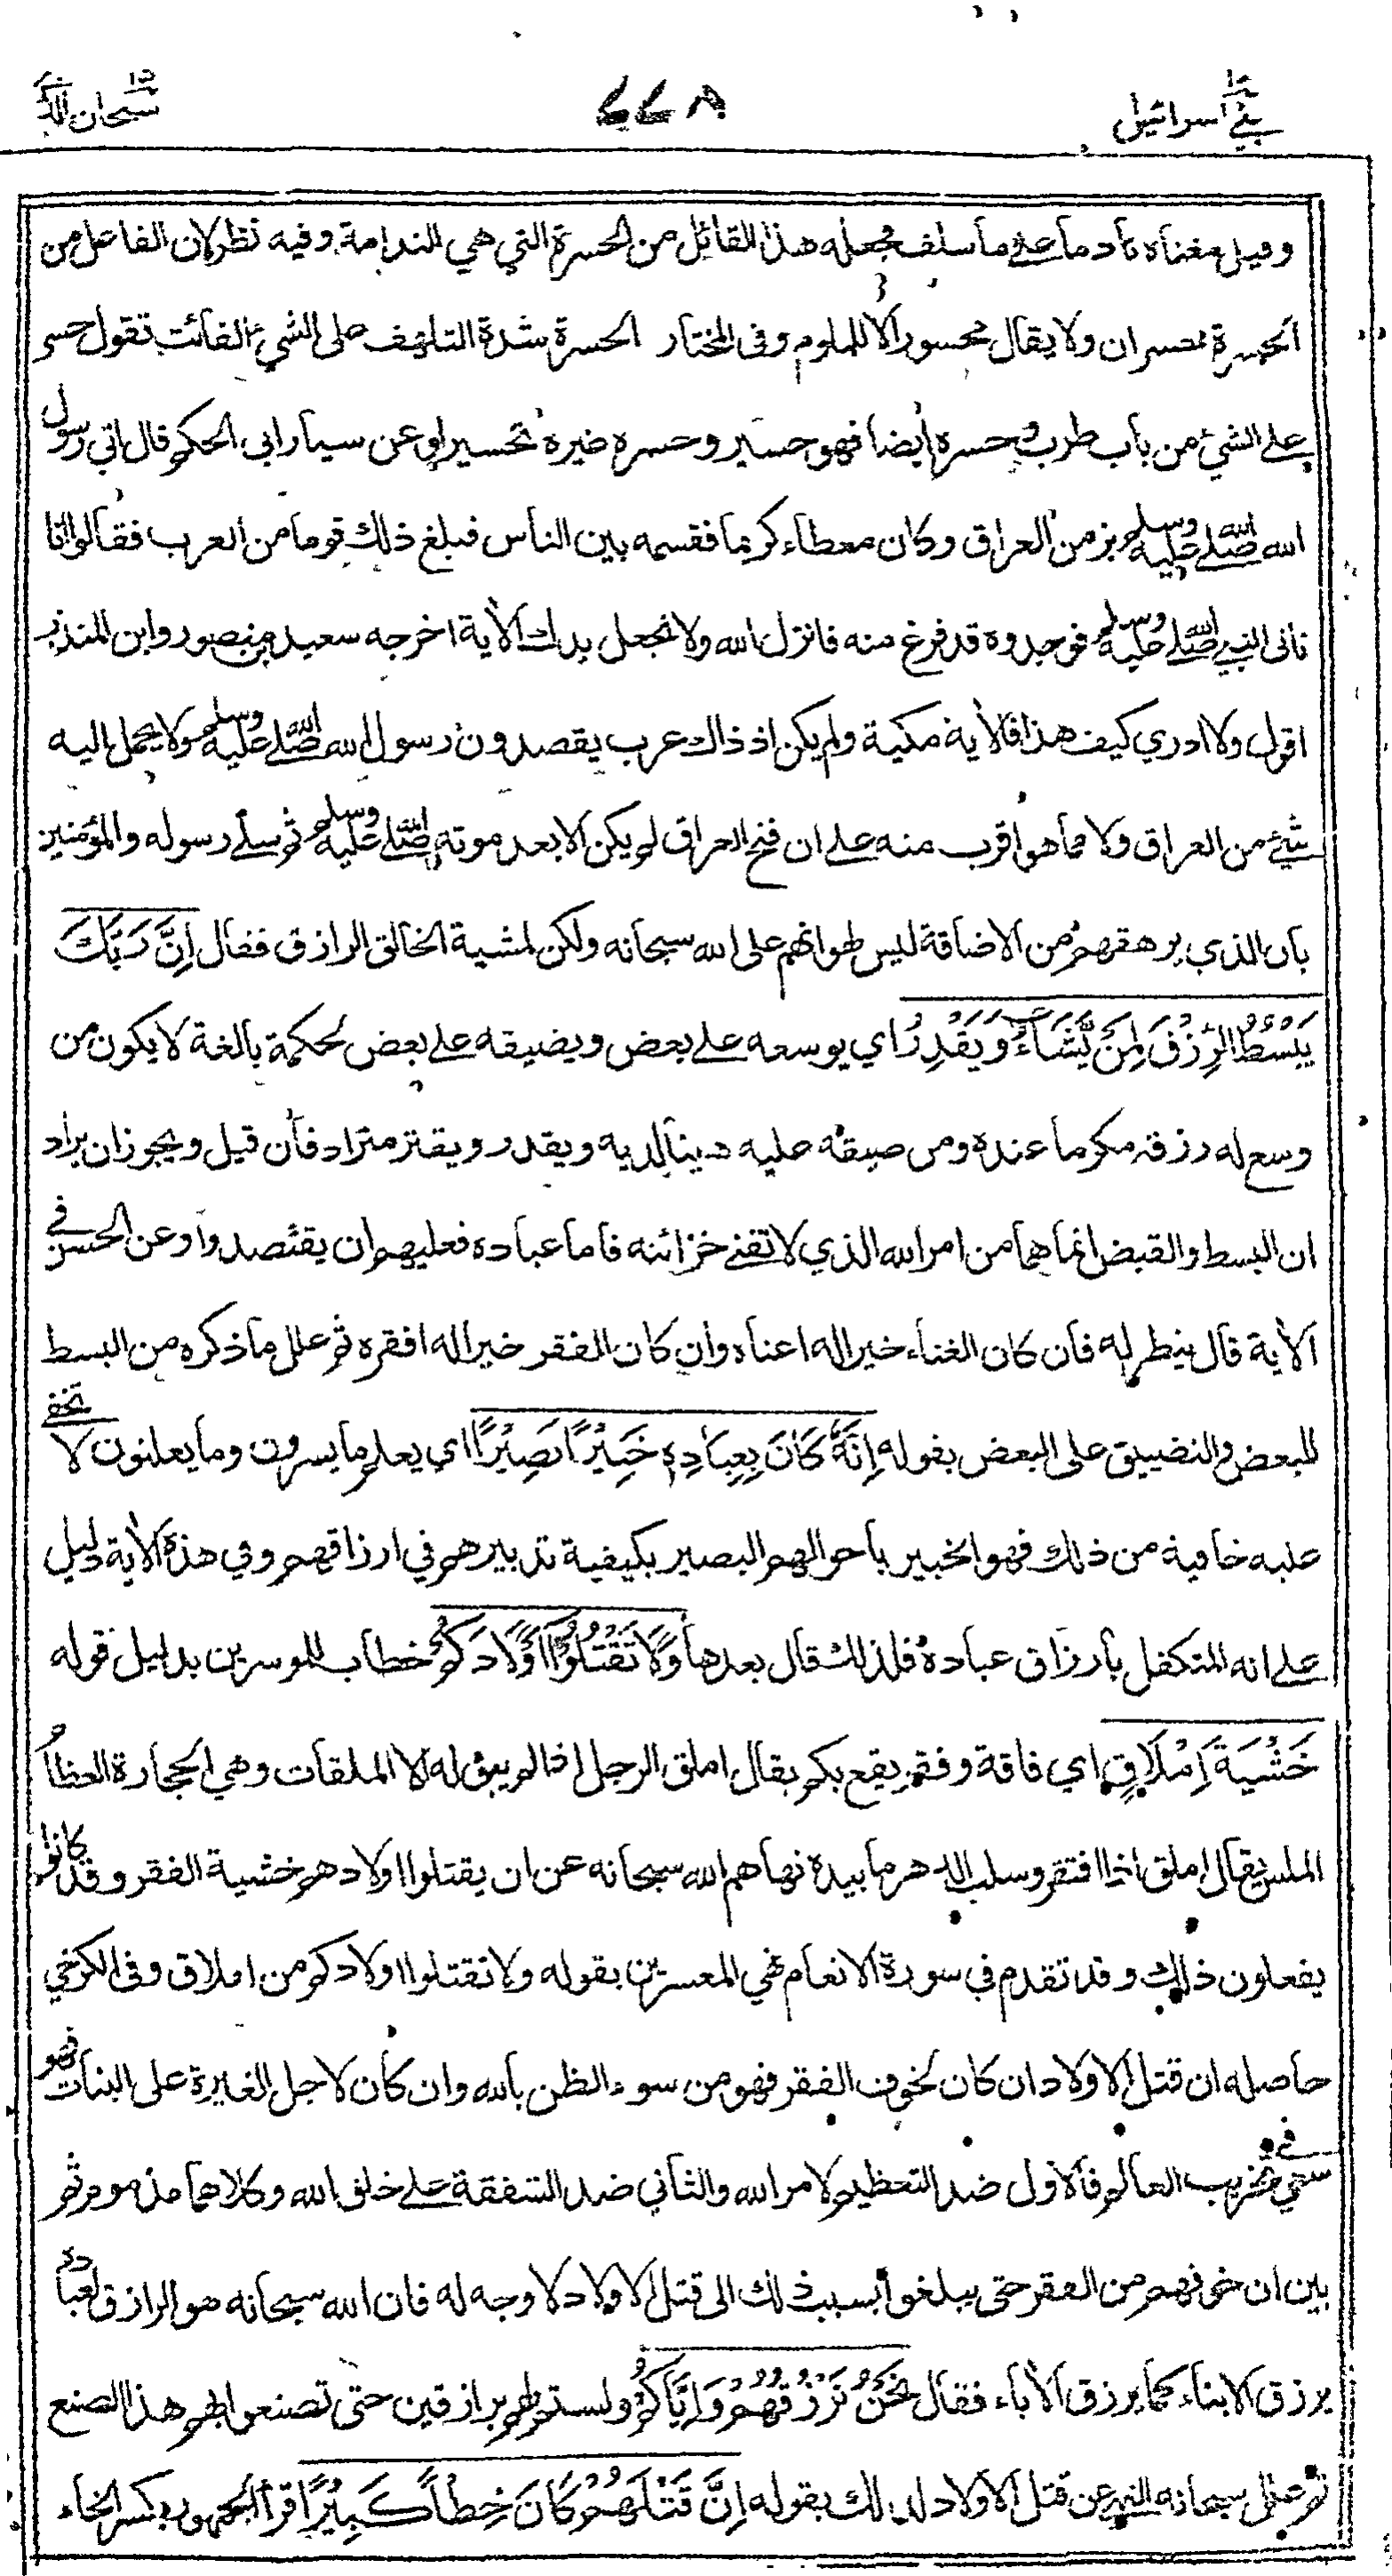 بني اسرائيل ١٧
٧٧٨
سبحان الذي ١٥
وقيل معناه نادما على ما سلف فجعله هذا القائل من الحسرة التي هي الندامة وفيه نظر لان الفاعل من
الحسرة حسران ولا يقال محسور الا للملوم وفي المختار الحسرة شدة التلهف على الشيء الفائت تقول حسر
على الشيء من باب طرب وحسرة ايضا فهو حسير وحسره غيره تحسيرا وعن سيار ابي الحكم قال اتي رسول
الله صلى الله عليه وسلم بز من العراق وكان معطاء كريما فقسمه بين الناس فبلغ ذلك قوما من العرب فقالوا انا
ناتي النبي صلى الله عليه وسلم فوجدوه قد فرغ منه فانزل الله ولا تجعل يدك الأية اخرجه سعيد بن منصور وابن المنذر
اقول ولا ادري كيف هذا فالأية مكية ولم يكن اذ ذاك عرب يقصدون رسول الله صلى الله عليه وسلم ولا يحمل اليه
شيء من العراق ولا مما هو اقرب منه على ان فتح العراق لم يكن الا بعد موته صلى الله عليه وسلم ثم سلى رسوله والمؤمنين
بان الذي يرهقهم من الاضاقة ليس لهوانهم على الله سبحانه ولكن لمشية الخالق الرازق فقال اِنَّ رَبَّكَ
يَبْسُطُ الرِّزْقَ لِمَنْ يَّشَاءُ وَيَقْدِرُ اي يوسعه على بعض ويضيقه على بعض لحكمة بالغة لا يكون من
وسع له رزقه مكرما عنده ومن ضيقه عليه هينا لديه ويقدر ويقتر مترادفان قيل ويجوز ان يراد
ان البسط والقبض انما هما من امر الله الذي لا تفنى خزائنه فاما عباده فعليهم ان يقتصدوا وعن الحسن في
الأية قال ينظر له فان كان الغناء خيرا له اغناه وان كان الفقر خيرا له افقره ثم علل ما ذكره من البسط
للبعض والتضييق على البعض بقوله اِنَّهٗ كَانَ بِعِبَادِهٖ خَبِيْرًا بَصِيْرًا اي يعلم ما يسرون وما يعلنون لا تخفى
عليه خافية من ذلك فهو الخبير باحوالهم البصير بكيفية تدبيرهم في ارزاقهم وفي هذه الأية دليل
على انه المتكفل بارزاق عباده فلذلك قال بعدها وَلَا تَقْتُلُوْٓا اَوْلَادَكُمْ خطاب للموسرين بدليل قوله
خَشْيَةَ اِمْلَاقٍ اي فاقة وفقر يقع بكم يقال املق الرجل اذا لم يبق له الا الملقات وهي الحجارة العظام
الملس يقال املق اذا افتقر وسلب الدهر ما بيده نهاهم الله سبحانه عن ان يقتلوا اولادهم خشية الفقر وقد كانوا
يفعلون ذلك وقد تقدم في سورة الانعام نهي المعسرين بقوله ولا تقتلوا اولادكم من املاق وفي الكرخي
حاصله ان قتل الاولاد ان كان لخوف الفقر فهو من سوء الظن بالله وان كان لاجل الغيرة على البنات فهو
سعي في تخريب العالم فالأول ضد التعظيم لامر الله والثاني ضد الشفقة على خلق الله وكلاهما مذموم ثم
بين ان خوفهم من الفقر حتى يبلغوا بسبب ذلك الى قتل الاولاد لا وجه له فان الله سبحانه هو الرازق لعباده
يرزق الابناء كما يرزق الأباء فقال نَحْنُ نَرْزُقُهُمْ وَاِيَّاكُمْ ولستم لهم برازقين حتى تصنعوا بهم هذا الصنع
ثم علل سبحانه النهي عن قتل الأولاد لذلك بقوله اِنَّ قَتْلَهُمْ كَانَ خِطْأً كَبِيْرًا قرأ الجمهور بكسر الخاء